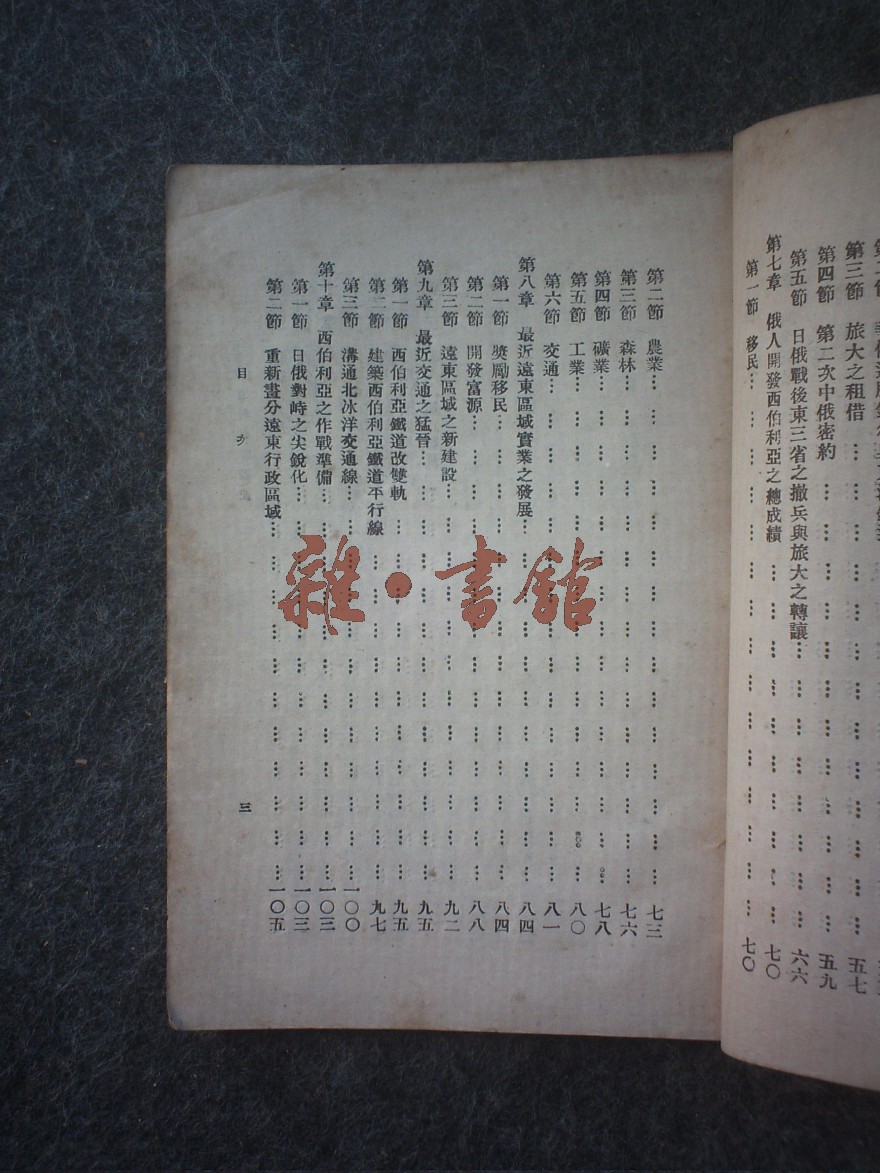 第三節 旅大之租借 … … … … … … … … 五七
第四節 第二次中俄密約 … … … … … … … 五九
第五節 日俄戰後東三省之撤兵與旅大之轉讓 … … … … … 六六
第七章 俄人開發西伯利亞之總成績 … … … … … … 七〇
第一節 移民 … … … … … … … … … 七〇
第二節 農業 … … … … … … … … … 七三
第三節 森林 … … … … … … … … … 七六
第四節 礦業 … … … … … … … … … 七八
第五節 工業 … … … … … … … … … 八〇
第六節 交通 … … … … … … … … … 八一
第八章 最近遠東區域實業之發展 … … … … … … 八四
第一節 獎勵移民 … … … … … … … … 八四
第二節 開發富源 … … … … … … … … 八八
第三節 遠東區域之新建設 … … … … … … … 九二
第九章 最近交通之猛晉 … … … … … … … 九五
第一節 西伯利亞鐵道改雙軌 … … … … … … 九五
第二節 建築西伯利亞鐵道平行線 … … … … … … 九七
第三節 溝通北冰洋交通線 … … … … … … … 一〇〇
第十章 西伯利亞之作戰準備 … … … … … … … 一〇三
第一節 日俄對峙之尖銳化 … … … … … … … 一〇三
第二節 重新畫分遠東行政區域 … … … … … … 一〇五
目 次 三
雜·書館